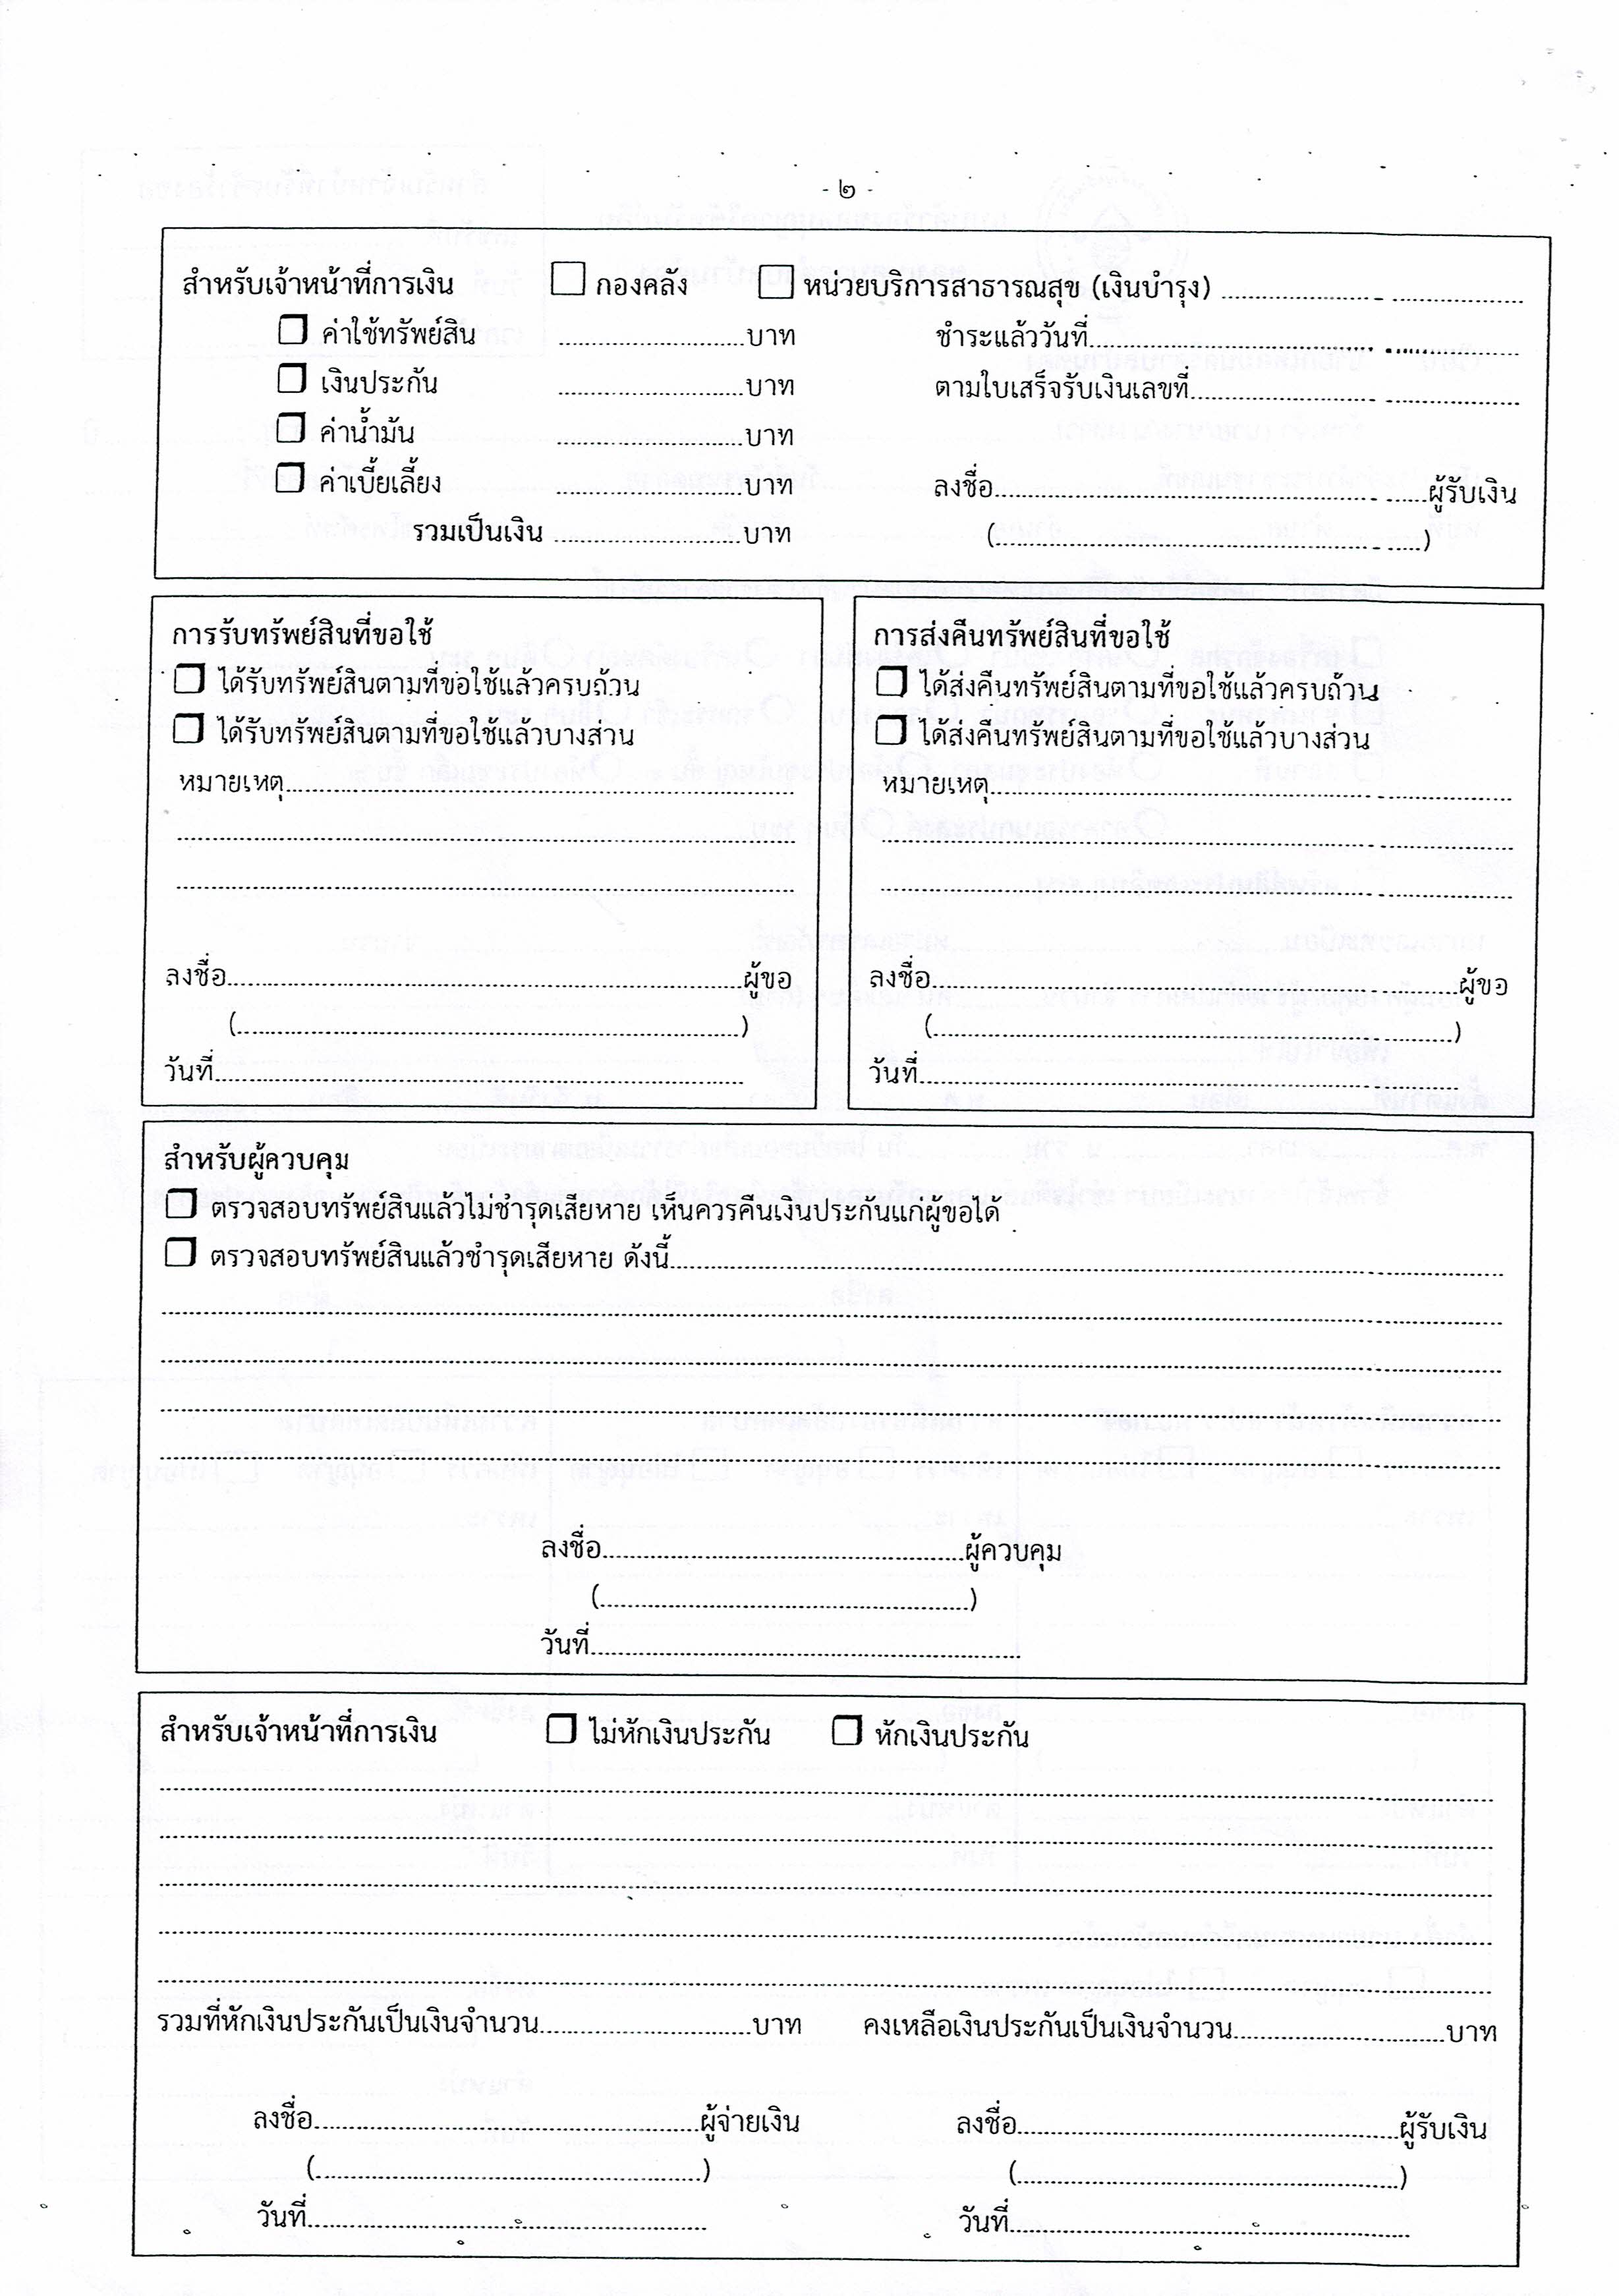 - ๒ -
สำหรับเจ้าหน้าที่การเงิน ☐ กองคลัง ☐ หน่วยบริการสาธารณสุข (เงินบำรุง) ....................
☐ ค่าใช้ทรัพย์สิน ....................บาท ชำระแล้ววันที่....................
☐ เงินประกัน ....................บาท ตามใบเสร็จรับเงินเลขที่....................
☐ ค่าน้ำมัน ....................บาท
☐ ค่าเบี้ยเลี้ยง ....................บาท ลงชื่อ....................ผู้รับเงิน
รวมเป็นเงิน ....................บาท (....................)
การรับทรัพย์สินที่ขอใช้
☐ ได้รับทรัพย์สินตามที่ขอใช้แล้วครบถ้วน
☐ ได้รับทรัพย์สินตามที่ขอใช้แล้วบางส่วน
หมายเหตุ....................
ลงชื่อ....................ผู้ขอ
(....................)
วันที่....................
การส่งคืนทรัพย์สินที่ขอใช้
☐ ได้ส่งคืนทรัพย์สินตามที่ขอใช้แล้วครบถ้วน
☐ ได้ส่งคืนทรัพย์สินตามที่ขอใช้แล้วบางส่วน
หมายเหตุ....................
ลงชื่อ....................ผู้ขอ
(....................)
วันที่....................
สำหรับผู้ควบคุม
☐ ตรวจสอบทรัพย์สินแล้วไม่ชำรุดเสียหาย เห็นควรคืนเงินประกันแก่ผู้ขอได้
☐ ตรวจสอบทรัพย์สินแล้วชำรุดเสียหาย ดังนี้....................
ลงชื่อ....................ผู้ควบคุม
(....................)
วันที่....................
สำหรับเจ้าหน้าที่การเงิน ☐ ไม่หักเงินประกัน ☐ หักเงินประกัน
รวมที่หักเงินประกันเป็นเงินจำนวน....................บาท คงเหลือเงินประกันเป็นเงินจำนวน....................บาท
ลงชื่อ....................ผู้จ่ายเงิน ลงชื่อ....................ผู้รับเงิน
(....................) (....................)
วันที่.................... วันที่....................